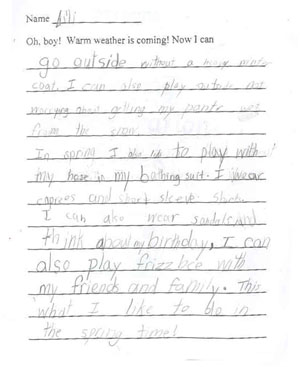 Name Lili
Oh, boy! Warm weather is coming! Now I can
go outside without a heavy winter
coat. I can also play outside not
worrying about getting my pants wet
from the snow.
In spring I also like to play with
my hose in my bathing suit. I wear
caprees and short sleeve shirts.
I can also wear sandals and
think about my birthday. I can
also play frizzbee with
my friends and family. This
what I like to do in
the spring time!